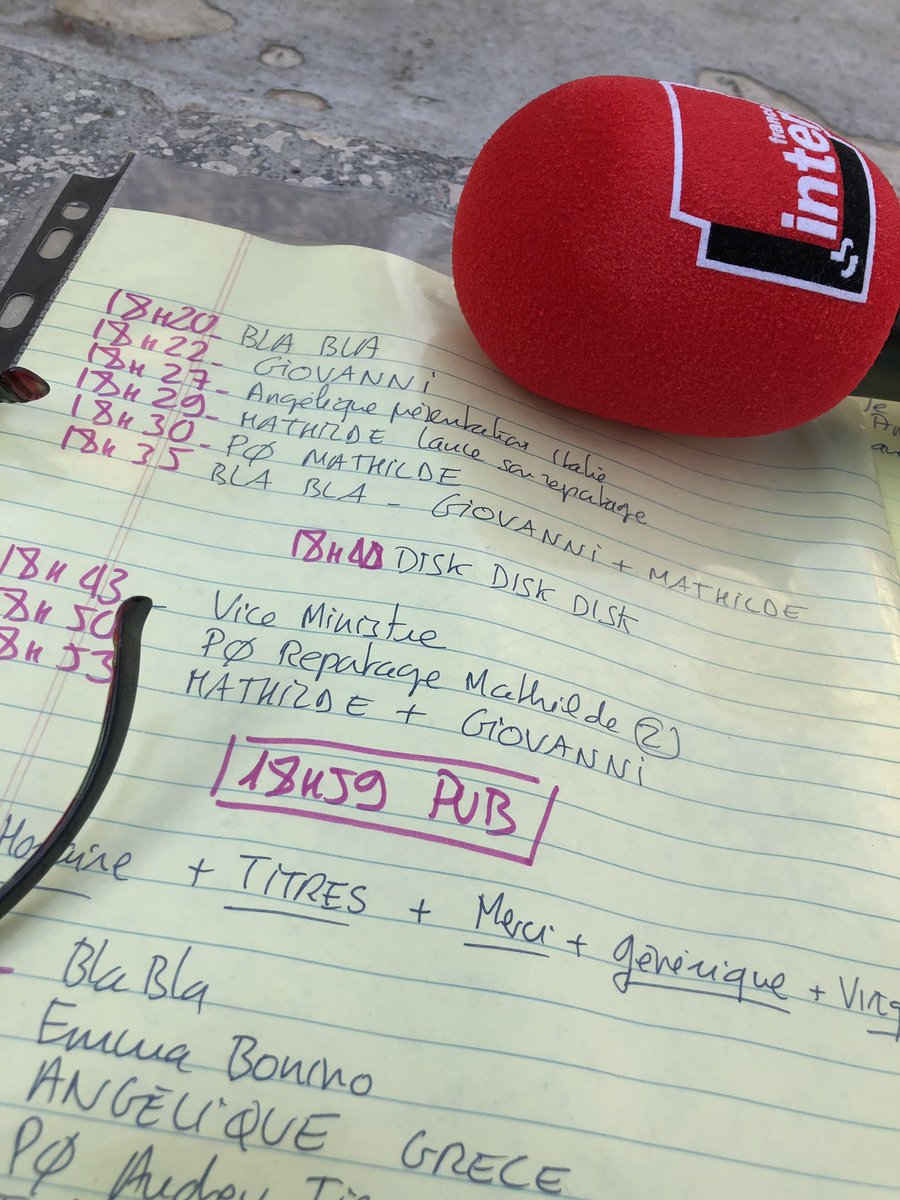 france
inter
18H20 - BLA BLA
18H22 - GIOVANNI
18H27 - Angélique présentation Italie
18H29 - MATHILDE lance son reportage
18H30 - PØ MATHILDE
18H35 - BLA BLA - GIOVANNI + MATHILDE
DISK DISK DISK
18H43 - Vice Ministre
18H50 PØ Reportage Mathilde (2)
18H53 MATHILDE + GIOVANNI
18H59 PUB
Horaire + TITRES + Merci + générique +
Bla Bla
Emma Bonino
ANGÉLIQUE GRECE
PØ Audrey